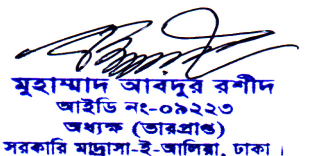 মুহাম্মাদ আবদুর রশীদ
আইডি নং-০৯২২৩
অধ্যক্ষ (ভারপ্রাপ্ত)
সরকারি মাদ্রাসা-ই-আলিয়া, ঢাকা ।